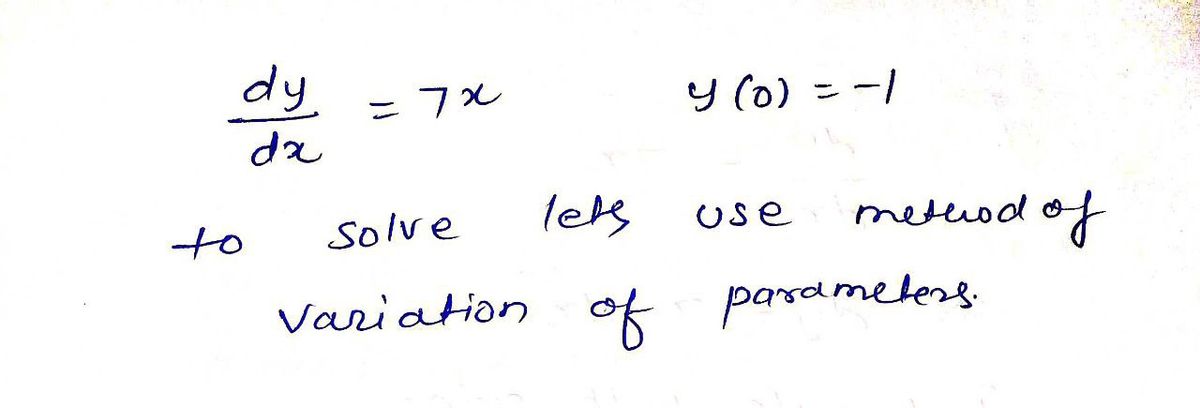 dy/dx = 7x y(0) = -1
to solve lets use method of
variation of parameters.